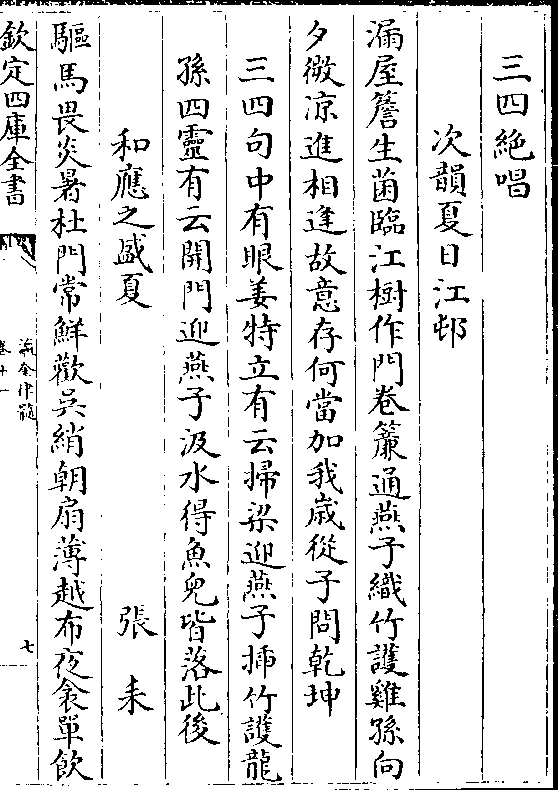 三四絶唱
次韻夏日江邨
漏屋簷生菌臨江樹作門卷簾通燕子織竹護雞孫向
夕微凉進相逢故意存何當加我歲從子問乾坤
三四句中有眼姜特立有云掃梁迎燕子揷竹護龍
孫四靈有云開門迎燕子汲水得魚兒皆落此後
和應之盛夏
張耒
驅馬畏炎暑杜門常鮮歡吳綃朝扇薄越布夜衾單飲
欽定四庫全書
瀛奎律髓
卷十一
七